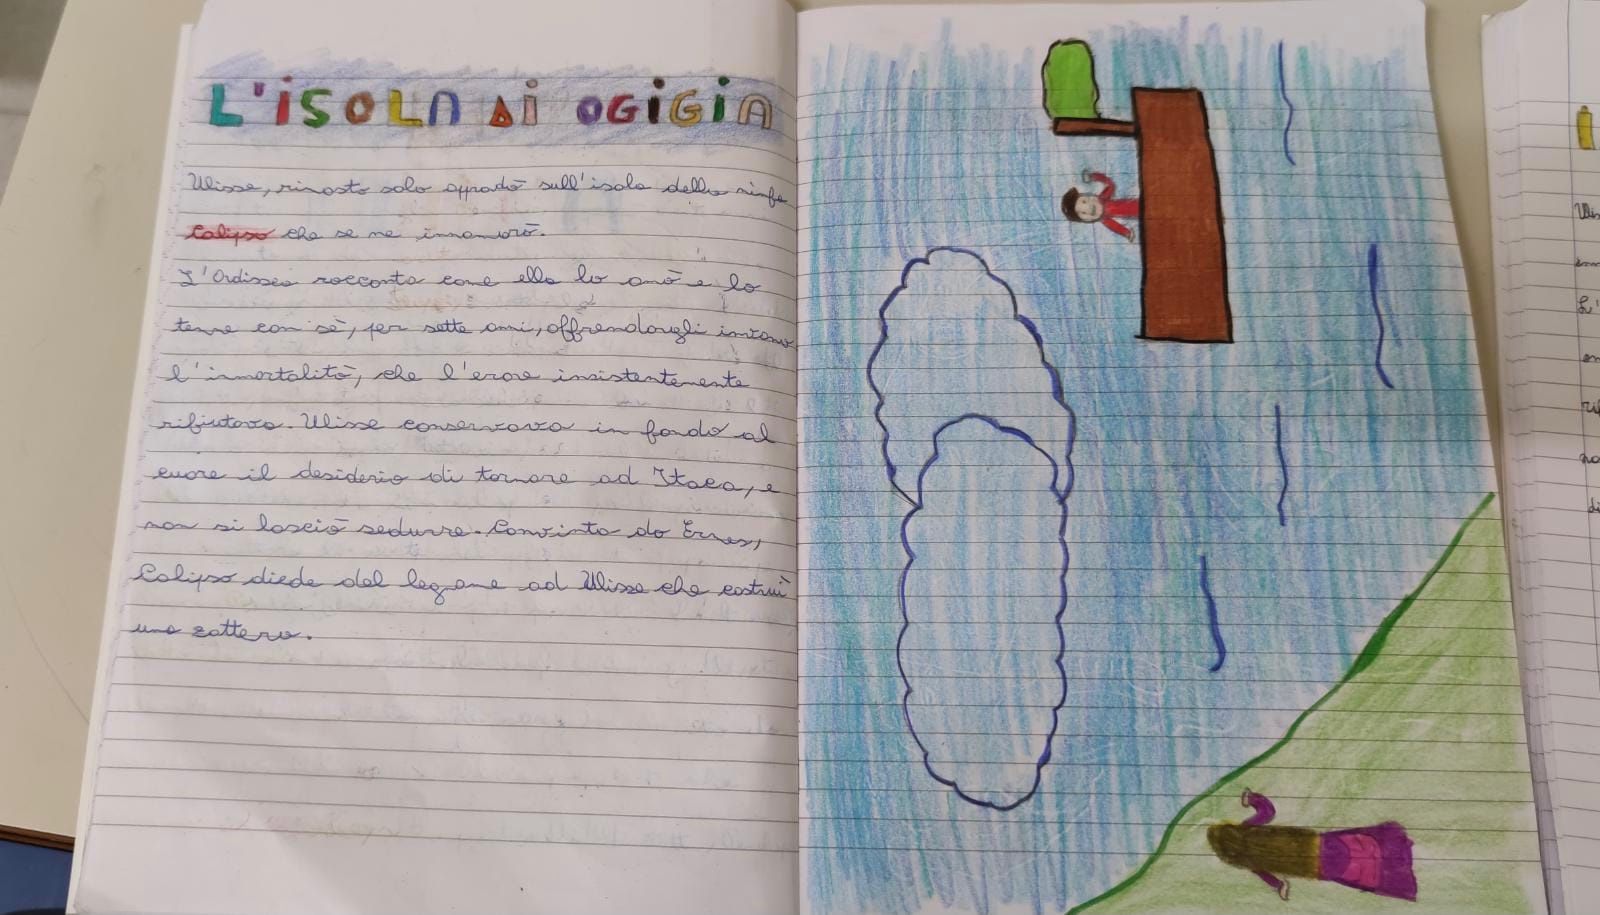 L'ISOLA DI OGIGIA
Ulisse, rimasto solo approdò sull'isola della ninfa
Calipso che se ne innamorò.
L'Ordissea racconta come ella lo amò e lo
tenne con sè, per sette anni, offrendogli invano
l'immortalità, che l'eroe insistentemente
rifiutava. Ulisse conservava in fondo al
cuore il desiderio di tornare ad Itaca, e
non si lasciò sedurre. Convinta da Ermes,
Calipso diede del legname ad Ulisse che costruì
una zattera.